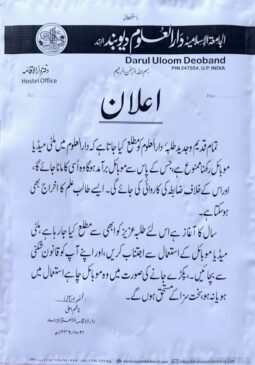 باسمہ تعالیٰ
الجامعۃ الاسلامیۃ دارالعلوم دیوبند الہند
Darul Uloom Deoband
PIN 247554, U.P. INDIA
دفتر دارالاقامہ
Hostel Office
بسم اللہ الرحمن الرحیم
اعلان
تمام قدیم وجدید طلبہ دارالعلوم کو مطلع کیا جاتا ہے کہ دارالعلوم میں ملٹی میڈیا
موبائل رکھنا ممنوع ہے، جس کے پاس سے موبائل برآمد ہوگا وہ اسی کا مانا جائے گا،
اور اس کے خلاف ضابطہ کی کاروائی کی جائے گی۔ ایسے طالب علم کا اخراج بھی
ہوسکتا ہے۔
سال کا آغاز ہے اس لئے طلبہ عزیز کو ابھی سے مطلع کیا جارہا ہے، ملٹی
میڈیا موبائل کے استعمال سے اجتناب کریں، اور اپنے آپ کو قانون شکنی
سے بچائیں، پکڑے جانے کی صورت میں وہ موبائل چاہے استعمال میں
ہو یا نہ ہو، سخت سزا کے مستحق ہوں گے۔